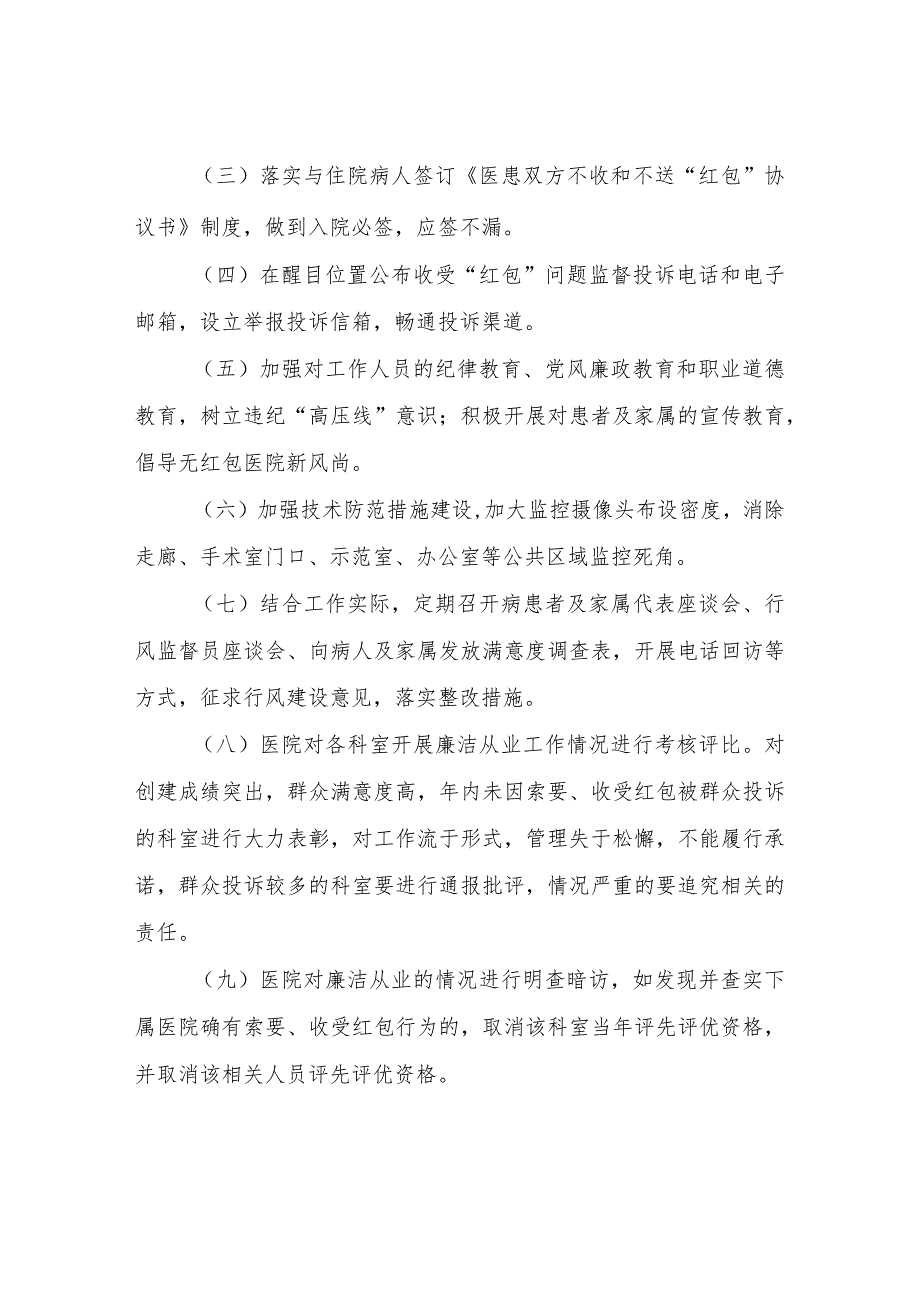 （三）落实与住院病人签订《医患双方不收和不送“红包”协
议书》制度，做到入院必签，应签不漏。
（四）在醒目位置公布收受“红包”问题监督投诉电话和电子
邮箱，设立举报投诉信箱，畅通投诉渠道。
（五）加强对工作人员的纪律教育、党风廉政教育和职业道德
教育，树立违纪“高压线”意识；积极开展对患者及家属的宣传教育，
倡导无红包医院新风尚。
（六）加强技术防范措施建设,加大监控摄像头布设密度，消除
走廊、手术室门口、示范室、办公室等公共区域监控死角。
（七）结合工作实际，定期召开病患者及家属代表座谈会、行
风监督员座谈会、向病人及家属发放满意度调查表，开展电话回访等
方式，征求行风建设意见，落实整改措施。
（八）医院对各科室开展廉洁从业工作情况进行考核评比。对
创建成绩突出，群众满意度高，年内未因索要、收受红包被群众投诉
的科室进行大力表彰，对工作流于形式，管理失于松懈，不能履行承
诺，群众投诉较多的科室要进行通报批评，情况严重的要追究相关的
责任。
（九）医院对廉洁从业的情况进行明查暗访，如发现并查实下
属医院确有索要、收受红包行为的，取消该科室当年评先评优资格，
并取消该相关人员评先评优资格。